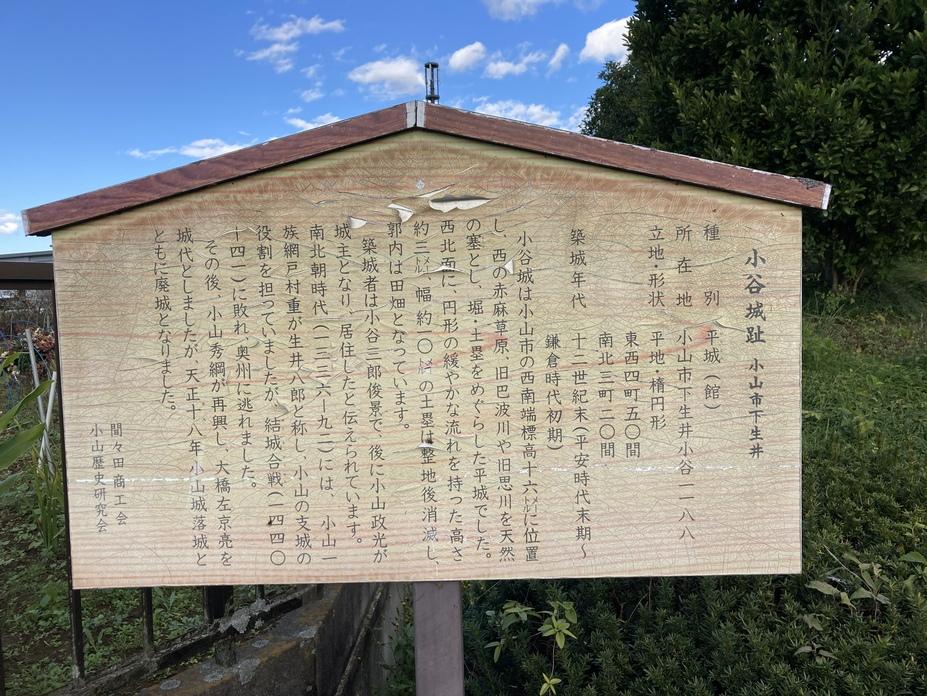 小谷城趾 小山市下生井
種別 平城(館)
所在地 小山市下生井小谷一一八八
立地・形状 平地・楕円形
東西四町五〇間
南北三町二〇間
築城年代 十二世紀末(平安時代末期〜
鎌倉時代初期)
小谷城は小山市の西南端標高十六㍍に位置
し、西の赤麻草原、旧巴波川や旧思川を天然
の塞とし、堀・土塁をめぐらした平城でした。
西北面に、円形の緩やかな流れを持った高さ
約三㍍、幅約一〇㍍の土塁は整地後消滅し、
郭内は田畑となっています。
築城者は小谷三郎俊景で、後に小山政光が
城主となり、居住したと伝えられています。
南北朝時代(一三三六ー九二)には、小山一
族網戸村重が生井八郎と称し、小山の支城の
役割を担っていましたが、結城合戦(一四四〇
ー四一)に敗れ、奥州に逃れました。
その後、小山秀綱が再興し、大橋左京亮を
城代としましたが、天正十八年小山城落城と
ともに廃城となりました。
間々田商工会
小山歴史研究会